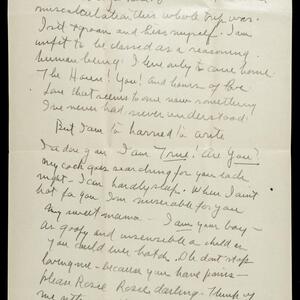 miscalculation this whole trip was.
I sit & groan and hiss myself. I am
unfit to be classed as a reasoning
human being! I live only to come home
The House! You! and hours of
love that seems to me now something
I've never had never understood.
But I am to harried to write
I adore you. I am True! Are You?
my cock goes searching for you each
night — I can hardly sleep. When I aint
hot for you I'm miserable for you
my sweet mama — I am your boy —
as goofy and unsensible a child as
you could ever hatch. Oh dont stop
loving me — because you have pains —
please Rosie Rosie darling — think of
me with